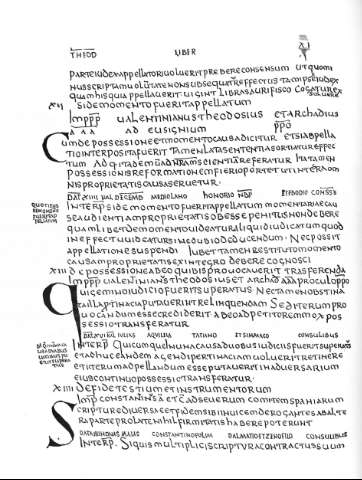 THEOD LIBER
PARTE IUDEX APPELLATORI UOLUERIT PREBERE CONSENSUM UT QUOMI
NUS SCRIPTAM UOLUNTATE NON SUBSEQUATUR EFFECTUS TAM IPSE IUDEX
QUAM HIS QUI APPELLAUERIT UIGINTI LIBRAS AURI FISCO COGATUR EX
SOLUERE
XII SI DE MOMENTO FUERIT APPELLATUM
IMPPP UALENTINIANUS THEODOSIUS ET ARCHADIUS
AAA AD EUSIGNIUM PPO
CUM DE POSSESSIONE ET MOMENTO CAUSA DICITUR ETSI APPELLA
TIO INTERPOSITA FUERIT TAMEN LATA SENTENTIA SORTIATUR EFFEC
TUM AD QUI TA DEM SCIENTIA REFERATUR ITA TAMEN
POSSESSIONIS REFORMATIONEM FIERI OPORTET UT INTEGRA OM
NIS PROPRIETATIS CAUSA SERUETUR
DAT XIII KAL DECEMB MEDIOLANO HONORIO NBP ET EUODIO CONSSB
INTERP SI DE MOMENTO FUERIT APPELLATUM MOMENTARIAE CAU
SE AUDIENTIAM PROPRIETATIS OBESSE PENITUS NON DEBERE
QUAM LIBET DE MOMENTO UIDEATUR ALIQUID IUDICATUM QUOD
IN EFFECTU UIDEATUR SINE DUBIO DEDUCENDUM NEC POSSIT
APPELLATIONE SUSPENDI IUBET TAMEN RESTITUTO MOMENTO
CAUSAM PROPRIETATIS EX INTEGRO DEBERE COGNOSCI
XIII DE POSSESSIONE AB EO QUI BIS PROUOCAUERIT TRASFERENDA
IMPPP UALENTINIANUS THEODOSIUS ET ARCHAD AAA PROCULO PPO
QUICUMQUE MOX IUDICIO FUERIT SUPERATUS NEC TAM OBSTINA
SED ITERUM PRO
UOCANDUM ESSE CREDIDERIT AB EO AD PETITOREM MOX POS
SESSIO TRANSFERATUR
TATIANO ET SIMMACO CONSULIBUS
INTERP QUICUMQUE IN UNA CAUSA DUOBUS IUDICIIS FUERIT SUPERATUS
ET ADHUC EANDEM AGENDI PERTINACIAM UOLUERIT RETINERE
ET ITERUM APPELLANDUM ESSE PUTAUERIT IN ADUERSARIUM
EIUS CONTINUO POSSESSIO TRASFERATUR
XIIII DE FIDE TESTIUM ET INSTRUMENTORUM
IMP CONSTANTINUS A ET C AD SEUERUM COMITEM SPANIARUM
SCRIPTURE DIUERSE ET FIDEM SIBI INUICEM DEROGANTES AB ALTE
RA PARTE PROLATE NIHIL FIRMITATIS HABERE POTERUNT
CONSTANTINOPOLIM DALMATIO ET ZENOFILO CONSULIBUS
INTERP SI QUIS MULTIPLICIS SCRIPTURA CONTRACTUS SUUM